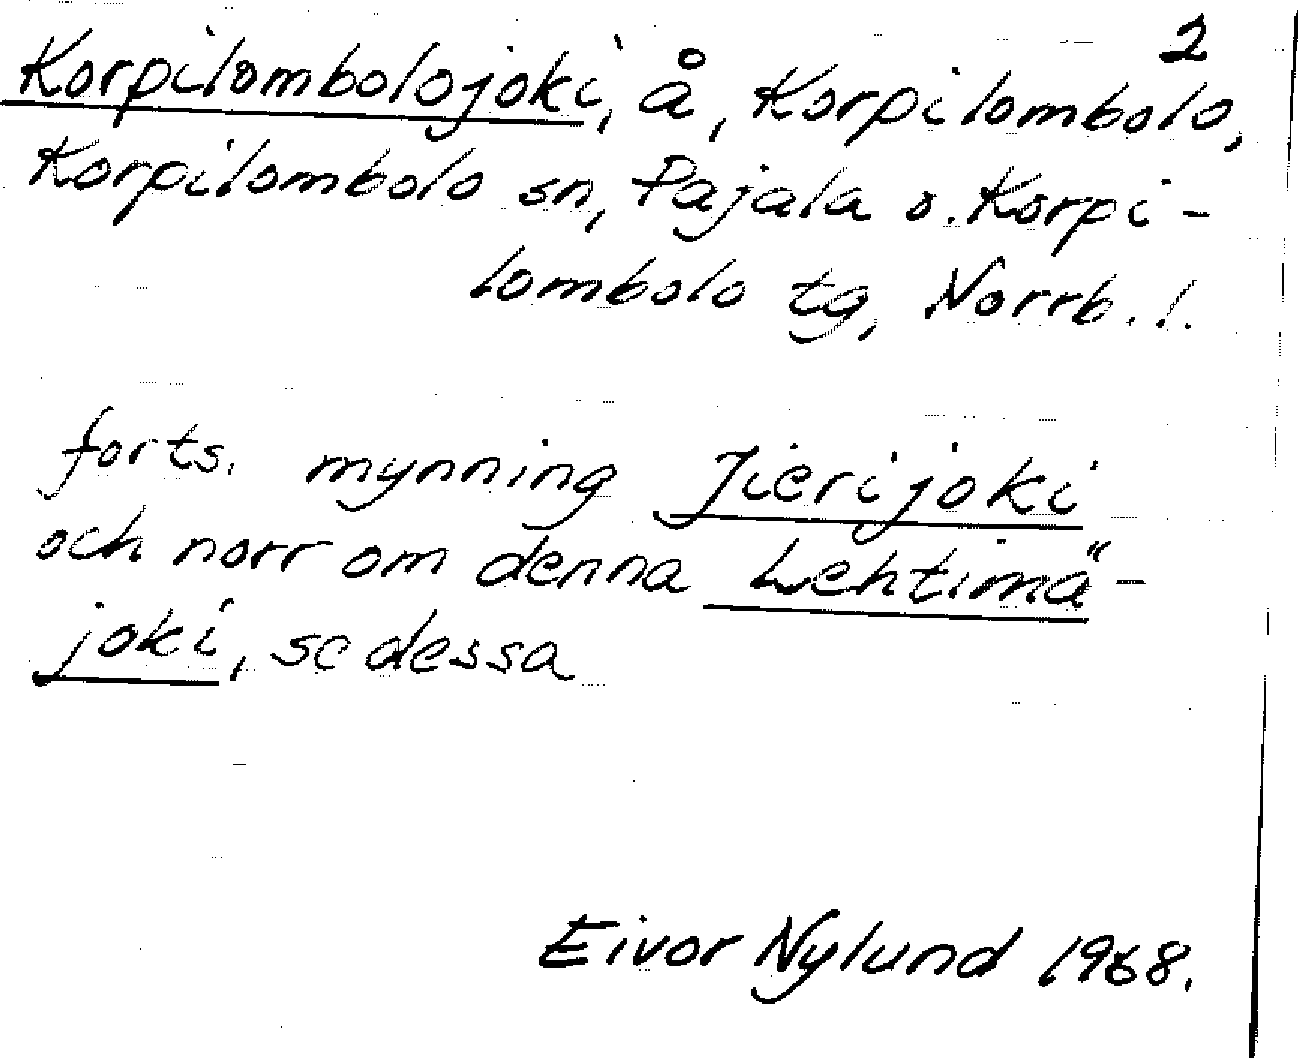 2
Korpilombolojoki, å, Korpilombolo,
Korpilombolo sn, Pajala o. Korpi-
lombolo tg, Norrb. l.
forts. mynning Jierijoki
och norr om denna Lehtimä-
joki, se dessa
Eivor Nylund 1968.